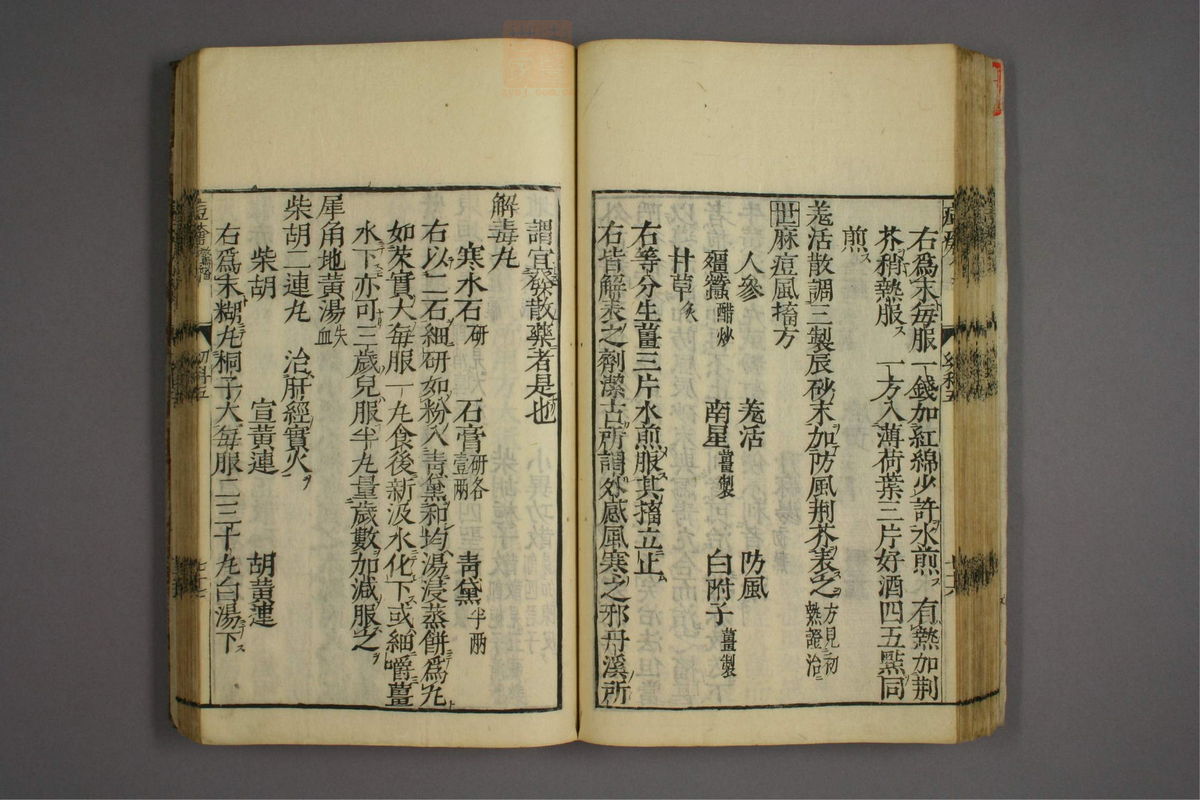 右爲末每服一錢加紅綿少許水煎ス有熱加荆
芥稍熱服ス 一方入薄荷葉三片好酒四五點同
煎ス
羗活散調三製辰砂末加防風荆芥表之方見初熱證治
世麻痘風搐方
人參 羗活 防風
殭蠶醋炒 南星薑製 白附子薑製
甘草炙
右等分生薑三片水煎服其搐立止
右皆解表之劑潔古所謂外感風寒之邪丹溪所
謂宜發散藥者是也
解毒丸
寒水石研 石膏研各壹兩 靑黛半兩
右以二石細研如粉入靑黛和均湯浸蒸餅爲丸
如茨實大每服一丸食後新汲水化下或細嚼薑
水下亦可三歲兒服半丸量歲數加減服之
犀角地黃湯失血
柴胡二連丸 治肝經實火
柴胡 宣黃連 胡黃連
右爲末糊丸桐子大每服二三十丸白湯下